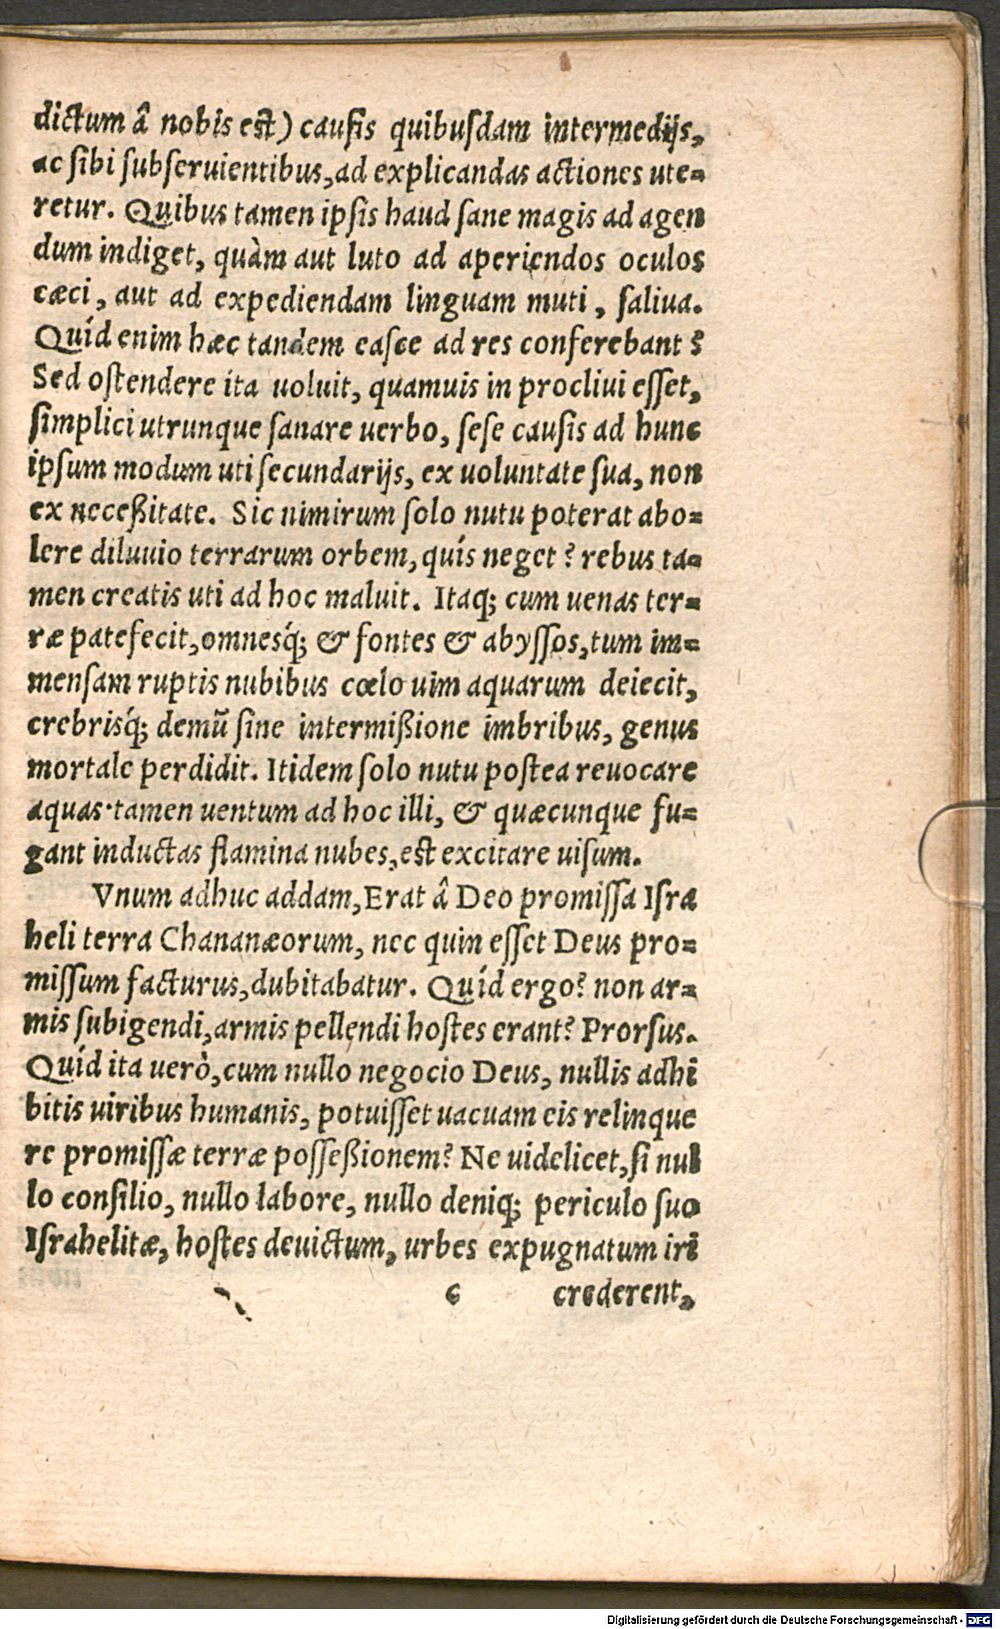 dictum â nobis est) causis quibusdam intermedijs,
ac sibi subseruientibus, ad explicandas actiones ute=
retur. Quibus tamen ipsis haud sane magis ad agen
dum indiget, quàm aut luto ad aperiendos oculos
cæci, aut ad expediendam linguam muti, saliua.
Quíd enim hæc tandem easce ad res conferebant?
Sed ostendere ita uoluit, quamuis in procliui esset,
simplici utrunque sanare uerbo, sese causis ad hunc
ipsum modum uti secundarijs, ex uoluntate sua, non
ex neceßitate. Sic nimirum solo nutu poterat abo=
lere diluuio terrarum orbem, quís neget? rebus ta=
men creatis uti ad hoc maluit. Itaq; cum uenas ter=
ræ patefecit, omnesq́; & fontes & abyssos, tum im=
mensam ruptis nubibus cœlo uim aquarum deiecit,
crebrisq́; demũ sine intermißione imbribus, genus
mortale perdidit. Itidem solo nutu postea reuocare
aquas· tamen uentum ad hoc illi, & quæcunque fu=
gant inductas flamina nubes, est excitare uisum.
Vnum adhuc addam, Erat â Deo promissa Isra
heli terra Chananæorum, nec quin esset Deus pro=
missum facturus, dubitabatur. Quíd ergo? non ar=
mis subigendi, armis pellendi hostes erant? Prorsus.
Quíd ita uerò, cum nullo negocio Deus, nullis adhi
bitis uiribus humanis, potuisset uacuam eis relinque
re promissæ terræ posseßionem? Ne uidelicet, si nul
lo consilio, nullo labore, nullo deniq; periculo suo
Israhelitæ, hostes deuictum, urbes expugnatum iri
c crederent,
Digitalisierung gefördert durch die Deutsche Forschungsgemeinschaft - DFG